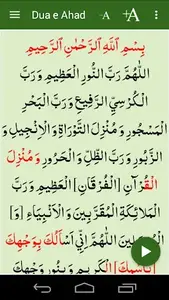 Dua e Ahad
-A
+A
بِسْمِ اللّٰهِ الرَّحْمٰنِ الرَّحِيْمِ
اَللّٰهُمَّ رَبَّ النُّوْرِ الْعَظِيْمِ وَ رَبَّ
الْكُرْسِيِّ الرَّفِيْعِ وَ رَبَّ الْبَحْرِ
الْمَسْجُوْرِ وَ مُنْزِلَ التَّوْرَاةِ وَ الْاِنْجِيْلِ وَ
الزَّبُوْرِ وَ رَبَّ الظِّلِّ وَ الْحَرُوْرِ وَ مُنْزِلَ
الْقُرْآنِ [الْفُرْقَانِ] الْعَظِيْمِ وَ رَبَّ
الْمَلَائِكَةِ الْمُقَرَّبِيْنَ وَ الْاَنْبِيَاءِ [وَ]
الْمُرْسَلِيْنَ اَللّٰهُمَّ اِنِّيْ اَسْاَلُكَ بِوَجْهِكَ
[بِاسْمِكَ] الْكَرِيْمِ وَ بِنُوْرِ وَجْهِكَ